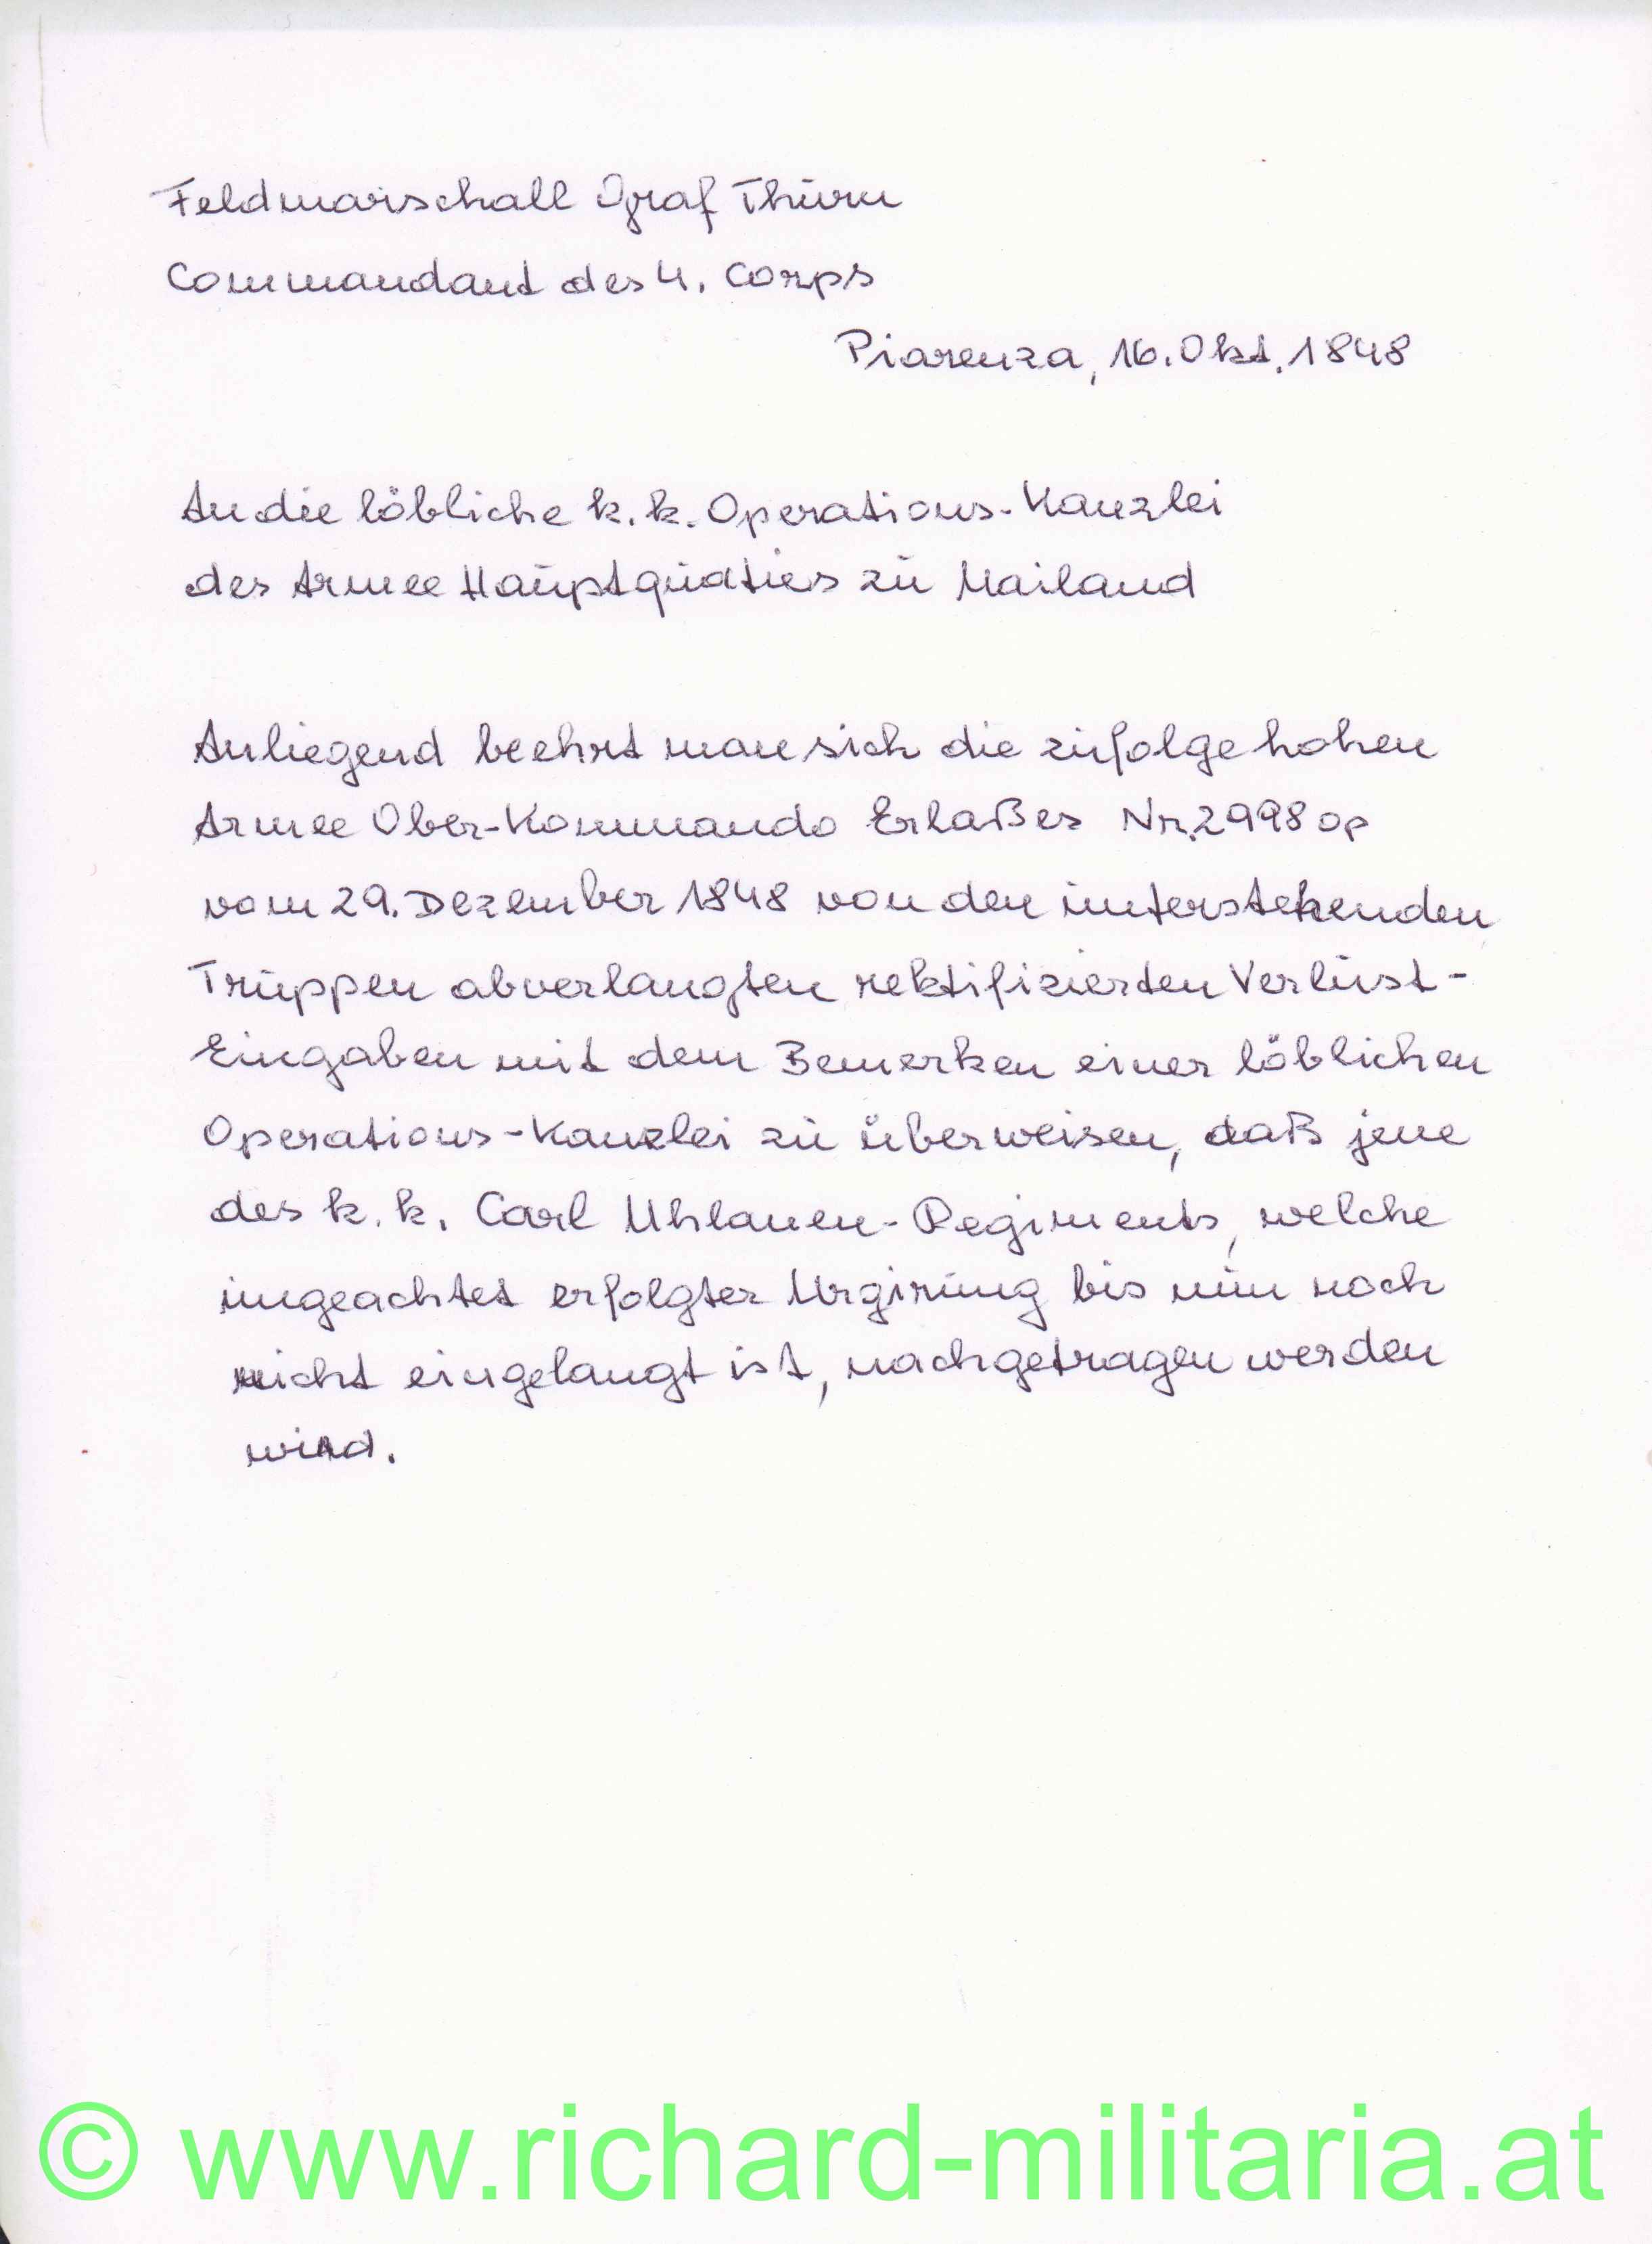 Feldmarschall Graf Thurn
Commandant des 4. Corps
Piarenza, 16. Okt. 1848
An die löbliche k. k. Operations-Kanzlei
des Armee Hauptquaties zu Mailand
Anliegend beehrt man sich die zufolge hohen
Armee Ober-Kommando Erlaßes Nr. 2998 op
vom 29. Dezember 1848 von den unterstehenden
Truppen abverlangten rektifizierten Verlust-
Eingaben mit dem Bemerken einer löblichen
Operations-Kanzlei zu überweisen, daß jene
des k. k. Carl Uhlanen-Regiments, welche
ungeachtet erfolgter Urgirung bis nun noch
nicht eingelangt ist, nachgetragen werden
wird.
© www.richard-militaria.at